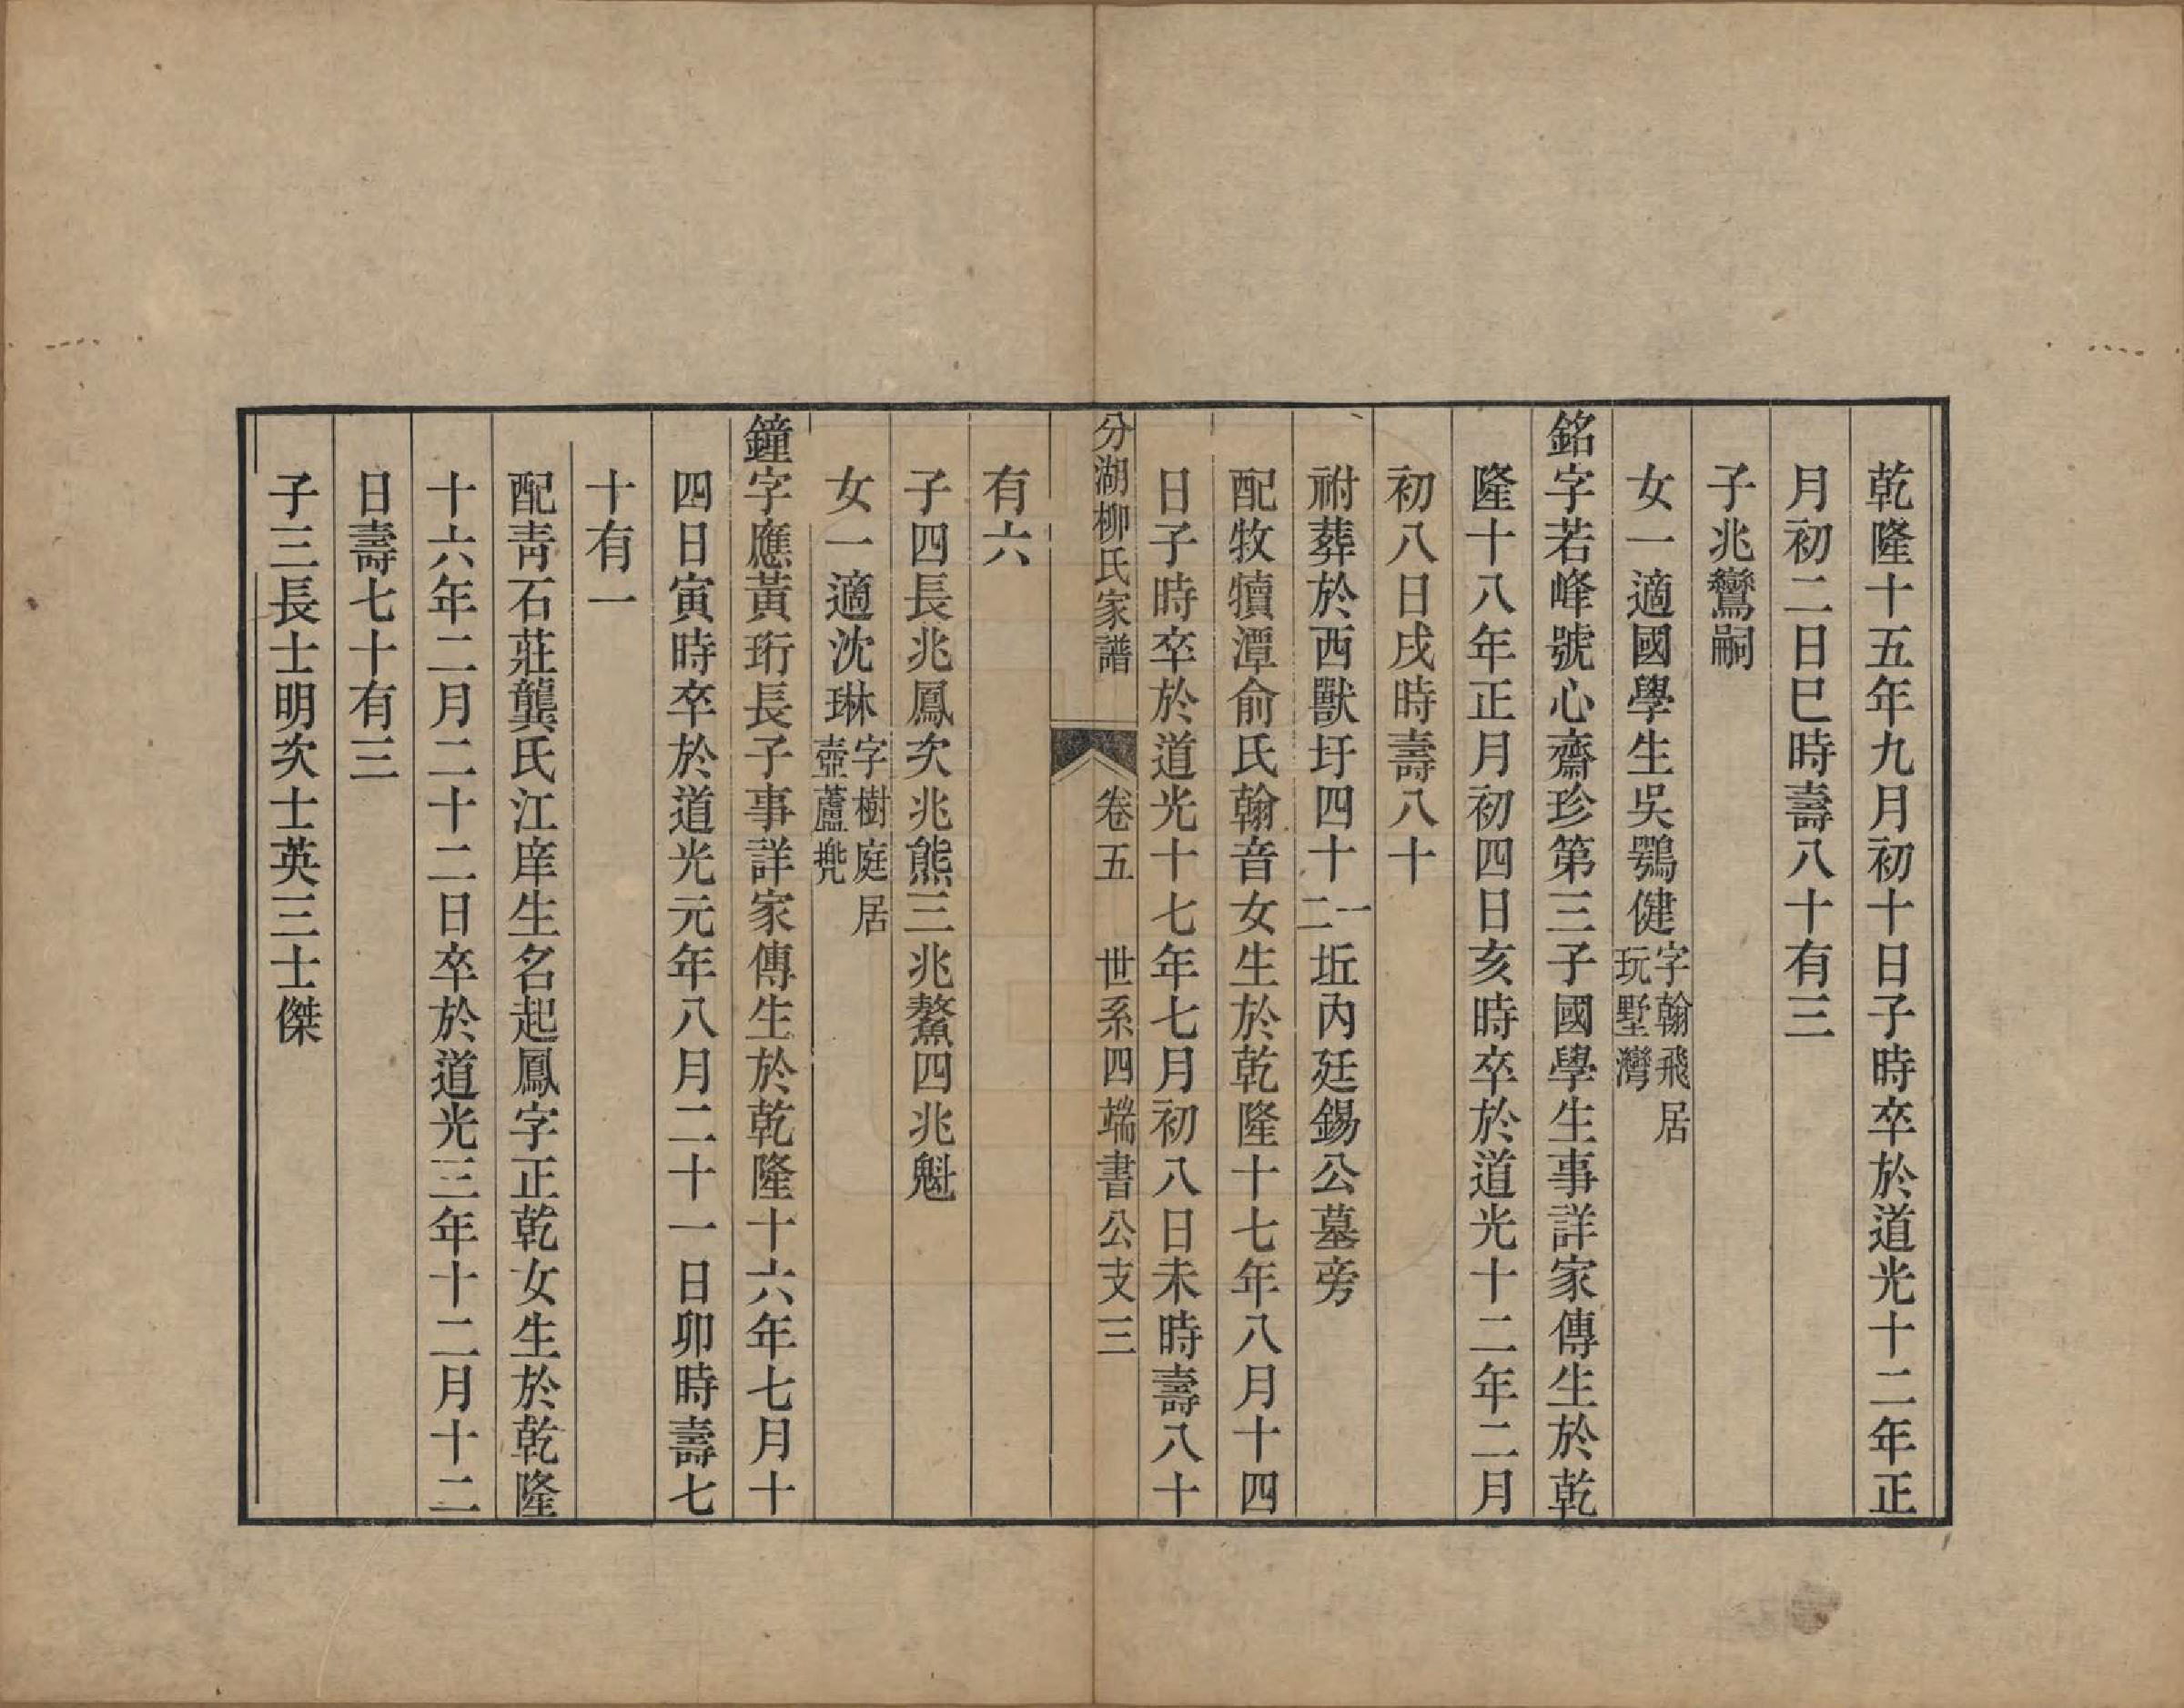 乾隆十五年九月初十日子時卒於道光十二年正
月初二日巳時壽八十有三
子兆鸞嗣
女一適國學生吳鶚健字翰飛居玩墅灣
銘字若峰號心齋珍第三子國學生事詳家傳生於乾
隆十八年正月初四日亥時卒於道光十二年二月
初八日戌時壽八十
祔葬於西獸圩四十一二坵內廷錫公墓旁
配牧犢潭俞氏翰音女生於乾隆十七年八月十四
日子時卒於道光十七年七月初八日未時壽八十
分湖柳氏家譜 卷五 世系四端書公支三
有六
子四長兆鳳次兆熊三兆鰲四兆魁
女一適沈琳字樹庭居壺蘆兠
鐘字應黃珩長子事詳家傳生於乾隆十六年七月十
四日寅時卒於道光元年八月二十一日卯時壽七
十有一
配靑石莊龔氏江庠生名起鳳字正乾女生於乾隆
十六年二月二十二日卒於道光三年十二月十二
日壽七十有三
子三長士明次士英三士傑